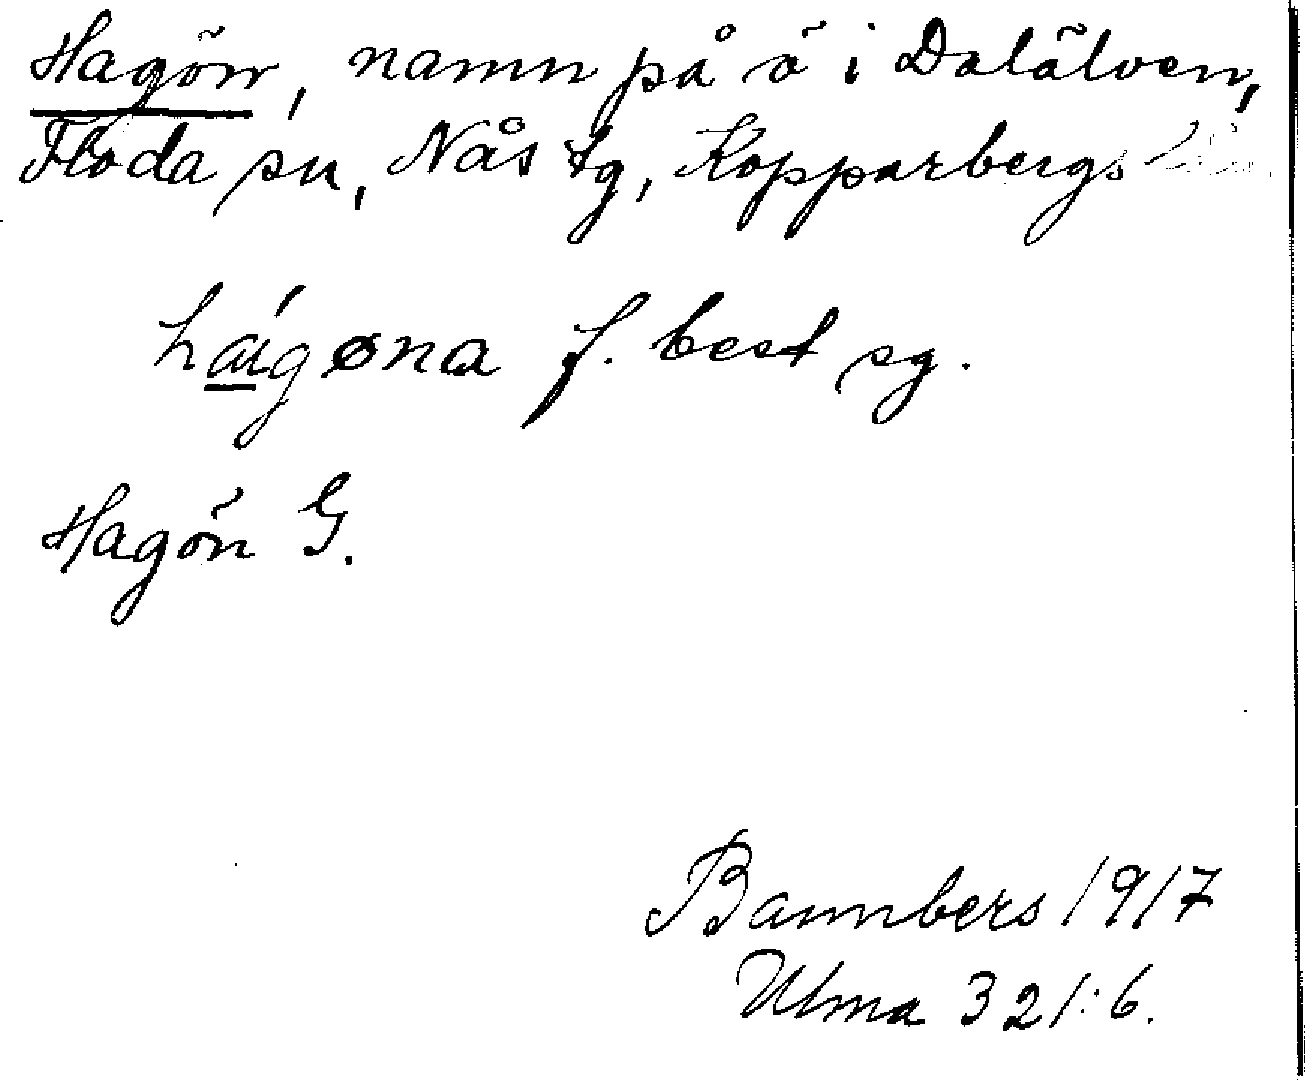 Hagön, namn på ö i Dalälven,
Floda sn, Nås tg, Kopparbergs
hágøna f. best sg.
Hagön G.
Bannbers 1917
Ulma 321:6.